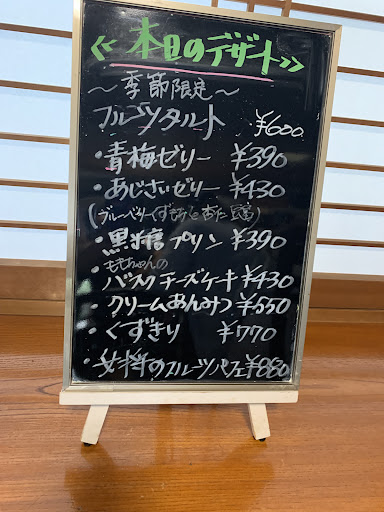 ≪本日のデザート≫
~季節限定~
フルーツタルト ¥600
・青梅ゼリー ¥390
・あじさいゼリー ¥430
(ブルーベリーくずもち
・黒糖プリン ¥390
ももちゃんの
・バスクチーズケーキ ¥430
・クリームあんみつ ¥550
・くずきり ¥770
・女将のフルーツパフェ ¥880